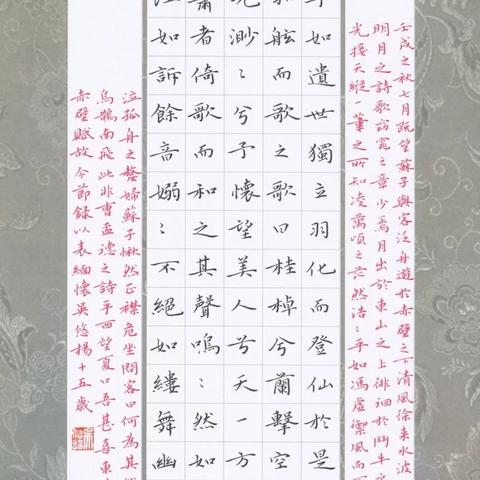 壬戌之秋七月既望蘇子與客泛舟遊於赤壁之下清風徐來水波
明月之詩歌窈窕之章少焉月出於東山之上徘徊於鬥牛之
光接天縱一葦之所如凌萬頃之茫然浩〻乎如馮虛禦風而
如遺世獨立羽化而登仙於是
舷而歌之歌曰桂棹兮蘭擊空
渺〻兮予懷望美人兮天一方
簫者倚歌而和之其聲嗚〻然如
如訴餘音嫋〻不絕如縷舞幽
泣孤舟之嫠婦蘇子愀然正襟危坐問客曰何為其
烏鵲南飛此非曹孟德之詩乎西望夏口吾甚喜東
赤壁賦故今節錄以表緬懷吳悠揚十五歲